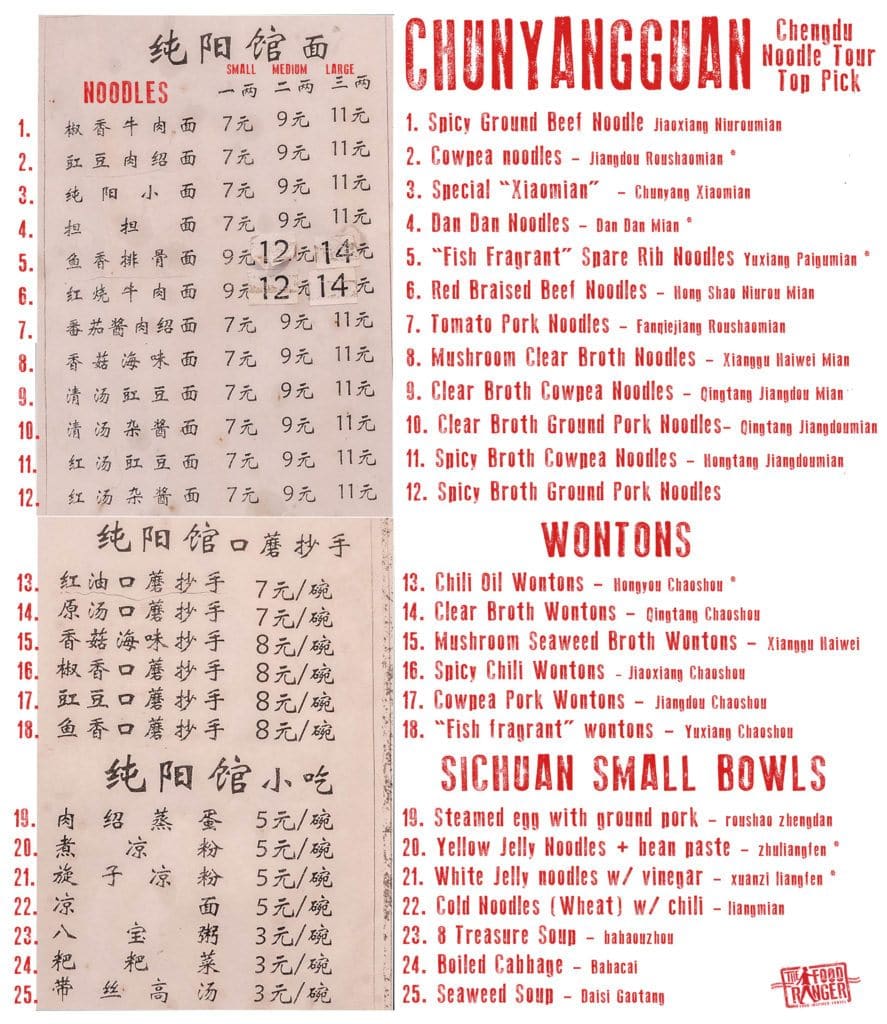 纯阳馆面
SMALL MEDIUM LARGE
NOODLES 一两 二两 三两
1. 椒香牛肉面 7元 9元 11元
2. 豇豆肉绍面 7元 9元 11元
3. 纯阳小面 7元 9元 11元
4. 担担面 7元 9元 11元
5. 鱼香排骨面 9元 12元 14元
6. 红烧牛肉面 9元 12元 14元
7. 番茄酱肉绍面 7元 9元 11元
8. 香菇海味面 7元 9元 11元
9. 清汤豇豆面 7元 9元 11元
10. 清汤杂酱面 7元 9元 11元
11. 红汤豇豆面 7元 9元 11元
12. 红汤杂酱面 7元 9元 11元
纯阳馆口蘑抄手
13. 红油口蘑抄手 7元/碗
14. 原汤口蘑抄手 7元/碗
15. 香菇海味抄手 8元/碗
16. 椒香口蘑抄手 8元/碗
17. 豇豆口蘑抄手 8元/碗
18. 鱼香口蘑抄手 8元/碗
纯阳馆小吃
19. 肉绍蒸蛋 5元/碗
20. 煮凉粉 5元/碗
21. 旋子凉粉 5元/碗
22. 凉面 5元/碗
23. 八宝粥 3元/碗
24. 粑粑菜 3元/碗
25. 带丝高汤 3元/碗
CHUNYANGGUAN
Chengdu
Noodle Tour
Top Pick
1. Spicy Ground Beef Noodle Jiaoxiang Niuroumian
2. Cowpea noodles – Jiangdou Roushaomian *
3. Special "Xiaomian" – Chunyang Xiaomian
4. Dan Dan Noodles – Dan Dan Mian *
5. "Fish Fragrant" Spare Rib Noodles Yuxiang Paigumian *
6. Red Braised Beef Noodles – Hong Shao Niurou Mian
7. Tomato Pork Noodles – Fanqiejiang Roushaomian
8. Mushroom Clear Broth Noodles – Xianggu Haiwei Mian
9. Clear Broth Cowpea Noodles – Qingtang Jiangdou Mian
10. Clear Broth Ground Pork Noodles– Qingtang Jiangdoumian
11. Spicy Broth Cowpea Noodles – Hongtang Jiangdoumian
12. Spicy Broth Ground Pork Noodles
WONTONS
13. Chili Oil Wontons – Hongyou Chaoshou *
14. Clear Broth Wontons – Qingtang Chaoshou
15. Mushroom Seaweed Broth Wontons – Xianggu Haiwei
16. Spicy Chili Wontons - Jiaoxiang Chaoshou
17. Cowpea Pork Wontons – Jiangdou Chaoshou
18. "Fish fragrant" wontons – Yuxiang Chaoshou
SICHUAN SMALL BOWLS
19. Steamed egg with ground pork – roushao zhengdan
20. Yellow Jelly Noodles + bean paste – zhuliangfen *
21. White Jelly noodles w/ vinegar – xuanzi liangfen *
22. Cold Noodles (Wheat) w/ chili – liangmian
23. 8 Treasure Soup – babaouzhou
24. Boiled Cabbage – Babacai
25. Seaweed Soup – Daisi Gaotang
THE FOOD
RANGER